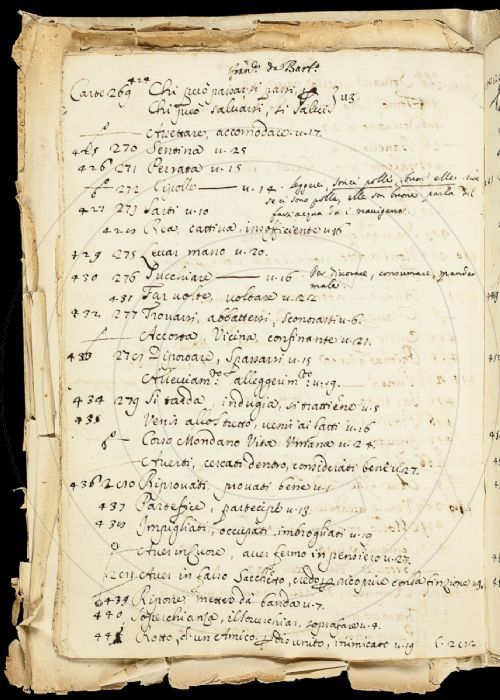 Fran.º da Barb.º
Carte 269 424 Chi può passarsi passi,
Chi può salvarsi, si salvi. } u 3
Assettare, accomodare. u. 17.
425 270 Sentina u. 25
426 271 Perrata u. 15
272 Cipolle — u. 14. leggerei,
se ci sono polle, elle son buone, parla del
far acqua da i naviganti.
427 273 Sarti u. 10
428 Rea, cattiva, insofficiente u. 16
429 275 Levar mano u. 20.
430 276 Succhiare — u. 16. Per divorare, consumare, mandar
male.
431 Far volte, voltare u. 22
432 277 Trovarsi, abbattersi, u. 6.
Accosta Vicina confinante u. 21.
433 278 Diporare, Spassarsi u. 15
Alleviam.to alleggerim.to u. 19.
434 279 Si tarda, indugia, si trattiene u. 5
435 Venir allo stretto, venir ai fatti u. 16
Corso Mondano Vita Umana u. 24.
Averti, cercati dentro, considerati bene u. 27.
436 280 Riprovati, provati bene u. 1
437 Partefice, partecipe u. 13.
438 Impigliati, occupati, imbrogliati u. 10
Aver in Cuore, aver fermo in pensiero u. 27.
281 Aver in
439 Riporre, metter da banda u. 7.
440 Soperchianza, il soverchiar, soprafare u. 4.
441 Rotto, d'un Amico, disunito, inimicato u. 19 C. 282